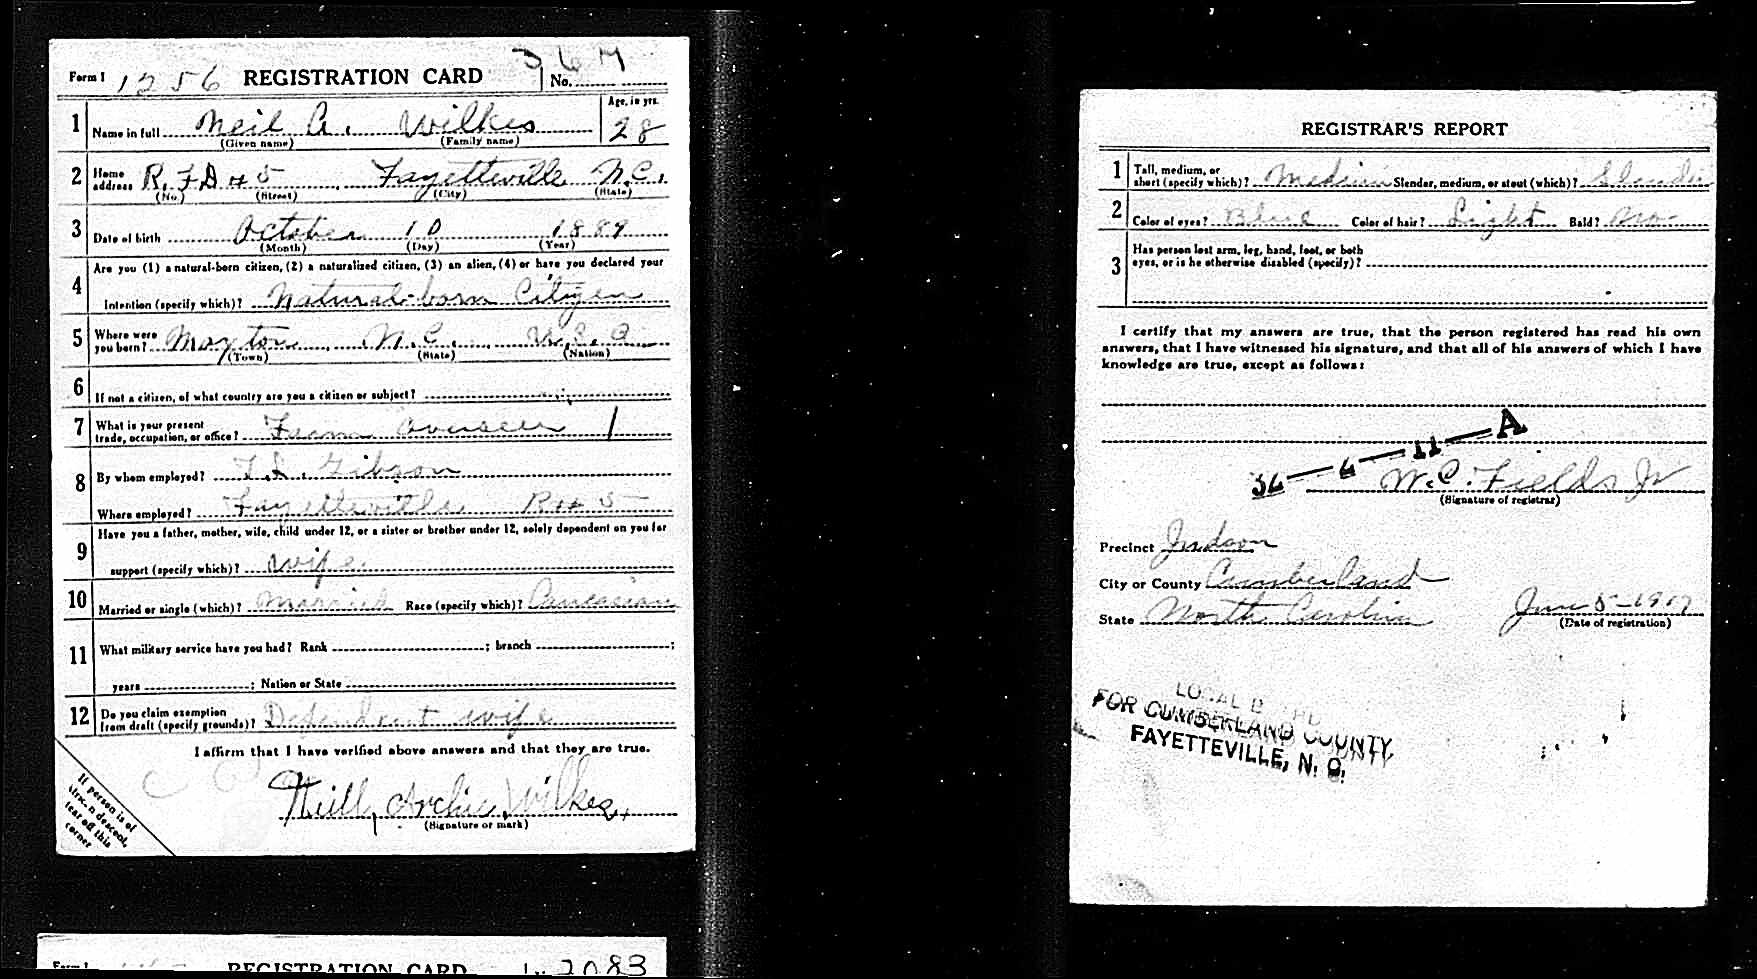 Form 1 1256 REGISTRATION CARD No. 367
1 Name in full Neil A. Wilkes Age, in yrs. 28
(Given name) (Family name)
2 Home address R. F D # 5 Fayetteville N.C.
(No.) (Street) (City) (State)
3 Date of birth October 10 1889
(Month) (Day) (Year)
4 Are you (1) a natural-born citizen, (2) a naturalized citizen, (3) an alien, (4) or have you declared your
intention (specify which)? Natural-born Citizen
5 Where were you born? Maxton N.C. U.S.A
(Town) (State) (Nation)
6 If not a citizen, of what country are you a citizen or subject?
7 What is your present trade, occupation, or office? Farm Overseer 1
8 By whom employed? Gibson
Where employed? Fayetteville R # 5
9 Have you a father, mother, wife, child under 12, or a sister or brother under 12, solely dependent on you for
support (specify which)? Wife
10 Married or single (which)? Married Race (specify which)? Caucasian
11 What military service have you had? Rank ; branch ;
years ; Nation or State
12 Do you claim exemption from draft (specify grounds)? Dependent wife
I affirm that I have verified above answers and that they are true.
Neill Archie Wilkes
(Signature or mark)
If person is of
African descent,
tear off this
corner
Form 1 REGISTRATION CARD 2083
REGISTRAR'S REPORT
1 Tall, medium, or short (specify which)? Medium Slender, medium, or stout (which)? Slender
2 Color of eyes? Blue Color of hair? Light Bald? No
3 Has person lost arm, leg, hand, foot, or both
eyes, or is he otherwise disabled (specify)?
I certify that my answers are true, that the person registered has read his own
answers, that I have witnessed his signature, and that all of his answers of which I have
knowledge are true, except as follows:
34—4—11—A
W.C. Fields Jr
(Signature of registrar)
Precinct Judson
City or County Cumberland
State North Carolina June 5-1917
(Date of registration)
LOCAL BOARD
FOR CUMBERLAND COUNTY
FAYETTEVILLE, N. C.